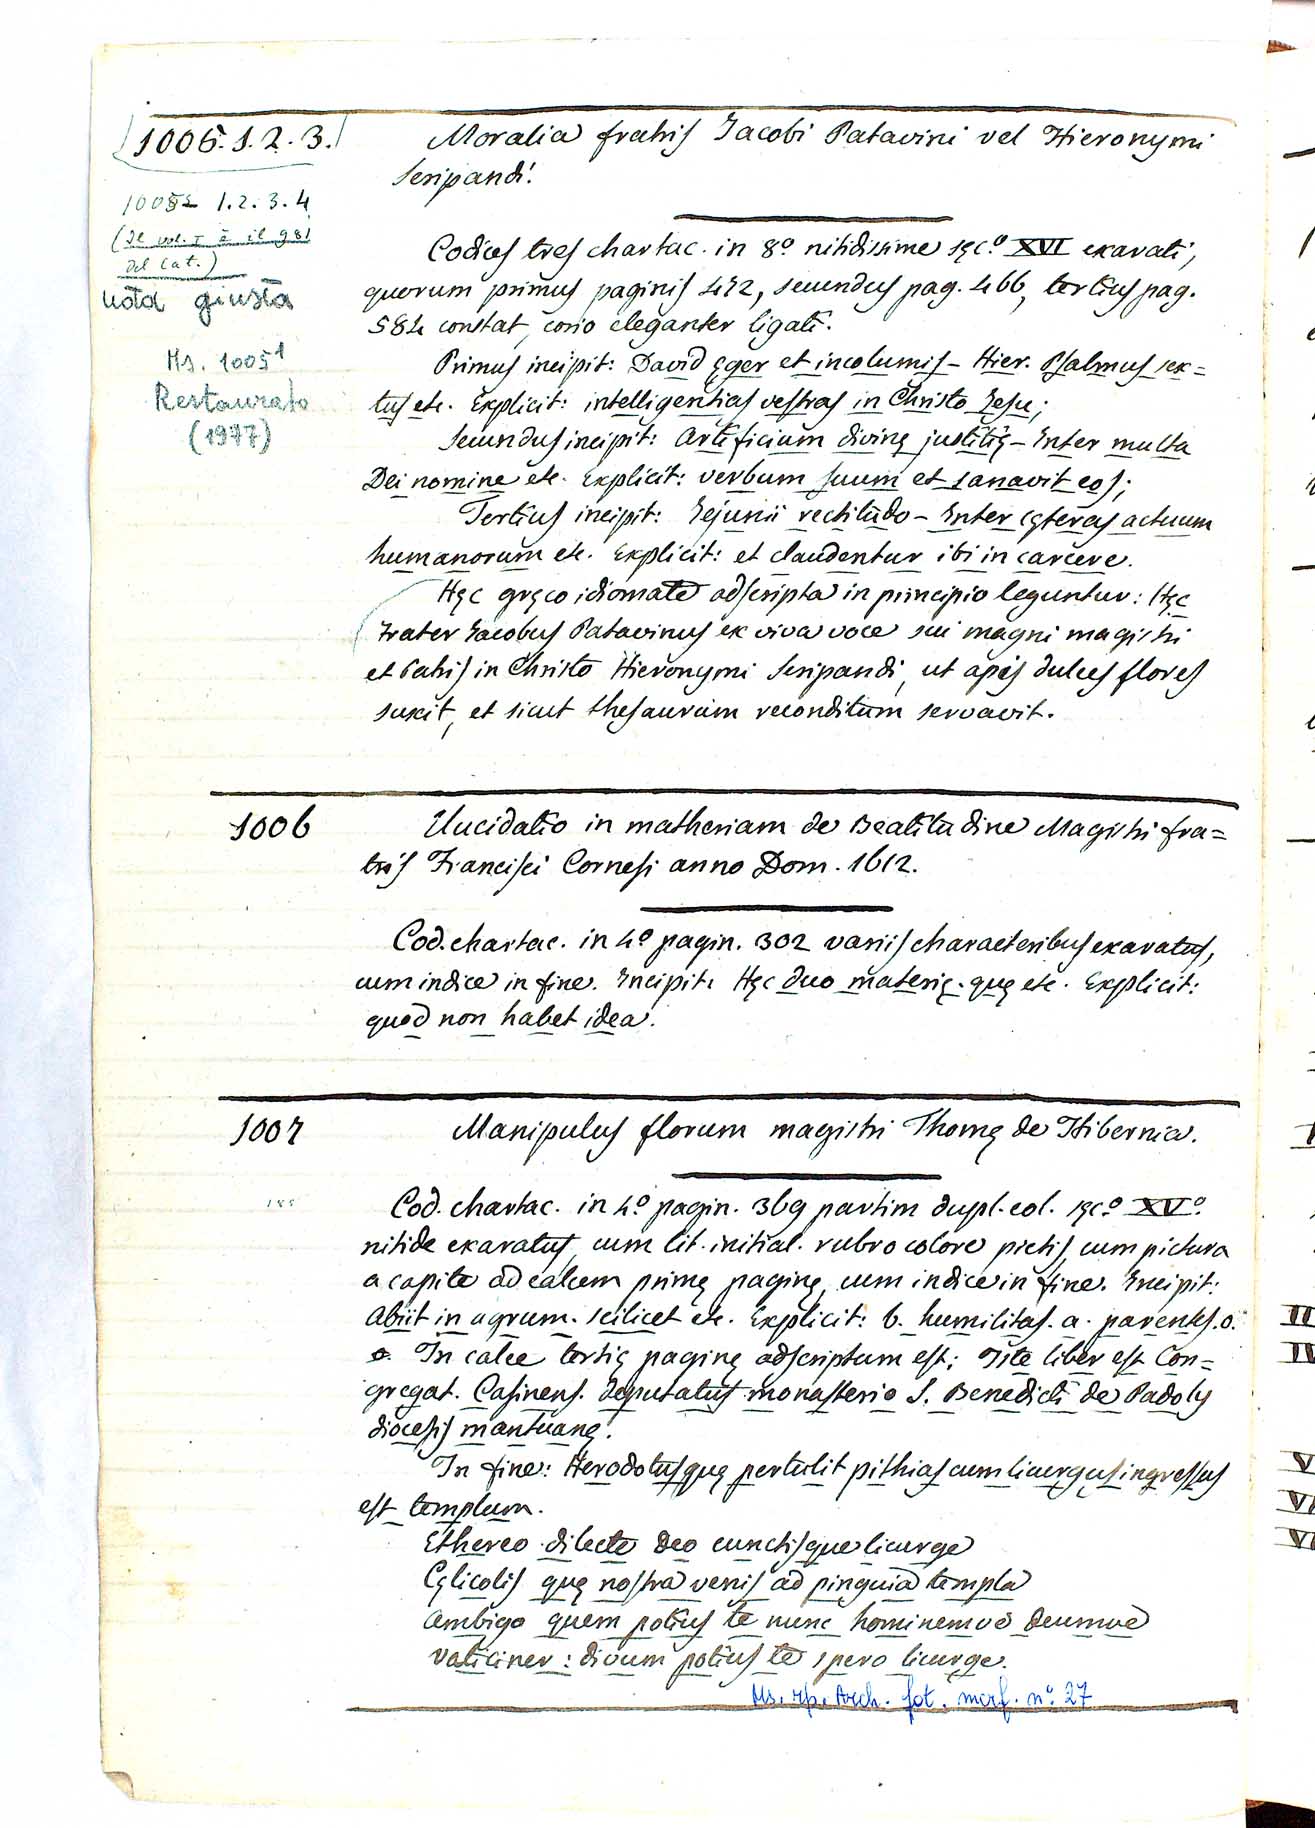 1005.1.2.3.
Moralia fratris Jacobi Patavini vel Hieronymi
Seripandi.
1.2.3.4
(Il vol. I è il 981
del Cat.)
nota giusta
Ms. 1005¹
Restaurato
(1977)
Codices tres chartac. in 8º nitidissime sęcº. XVI exarati,
quorum primus paginis 472, secundus pag. 466, tertius pag.
584 constat, corio eleganter ligati.
Primus incipit: David ęger et incolumis – Hier. Psalmus sex=
tus etc. Explicit: intelligentias vestras in Christo Jesu;
Secundus incipit: Artificium divinę justitię – Inter multa
Dei nomine etc. Explicit: verbum suum et sanavit eos;
Tertius incipit: Jejunii rectitudo – Inter cęteras actuum
humanorum etc. Explicit: et claudentur ibi in carcere.
Hęc gręco idiomate adscripta in principio leguntur: Hęc
Frater Jacobus Patavinus ex viva voce sui magni magistri
et Patris in Christo Hieronymi Seripandi, ut apis dulces flores
suxit, et sicut thesaurum reconditum servavit.
1006
Elucidatio in matheriam de Beatitudine Magistri fra=
tris Francisci Cornesi anno Dom. 1612.
Cod. chartac. in 4º pagin. 302 variis characteribus exaratus,
cum indice in fine. Incipit: Hęc duo materię. quę etc. Explicit:
quod non habet idea.
1007
Manipulus florum magistri Thomę de Hibernia.
Cod. chartac. in 4º pagin. 369 partim dupl. col. sęcº XVº.
nitide exaratus, cum lit. initial. rubro colore pictis, cum pictura
a capite ad calcem primę paginę, cum indice in fine. Incipit:
Abiit in agrum. scilicet etc. Explicit: b. humilitas. a. parentes. o.
o. In calce tertię paginę adscriptum est: Iste liber est Con=
gregat. Casinens. deputatus monasterio S. Benedicti de Padoly
diocesis mantuanę.
In fine: Herodotus quę pertulit pithias cum licurgus ingressus
est templum.
Ethereo dilecte deo cunctisque licurge
Cęlicolis quę nostra venis ad pinguia templa
Ambigo quem potius te nunc hominemve deumve
vaticiner: divum potius te spero licurge.
Ms. rip. Arch. fot. mcrf. nº 27
II
IV
V